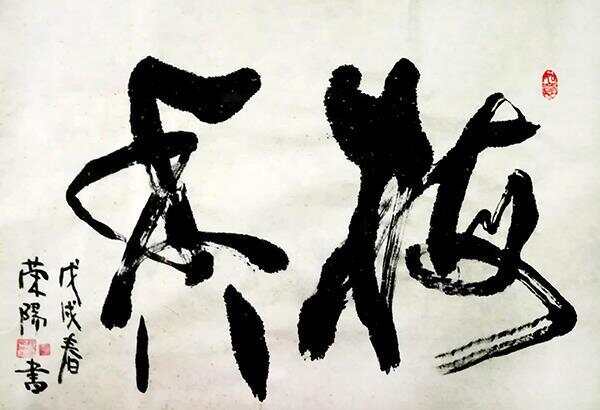 梅香
戊戌春
荣陽書